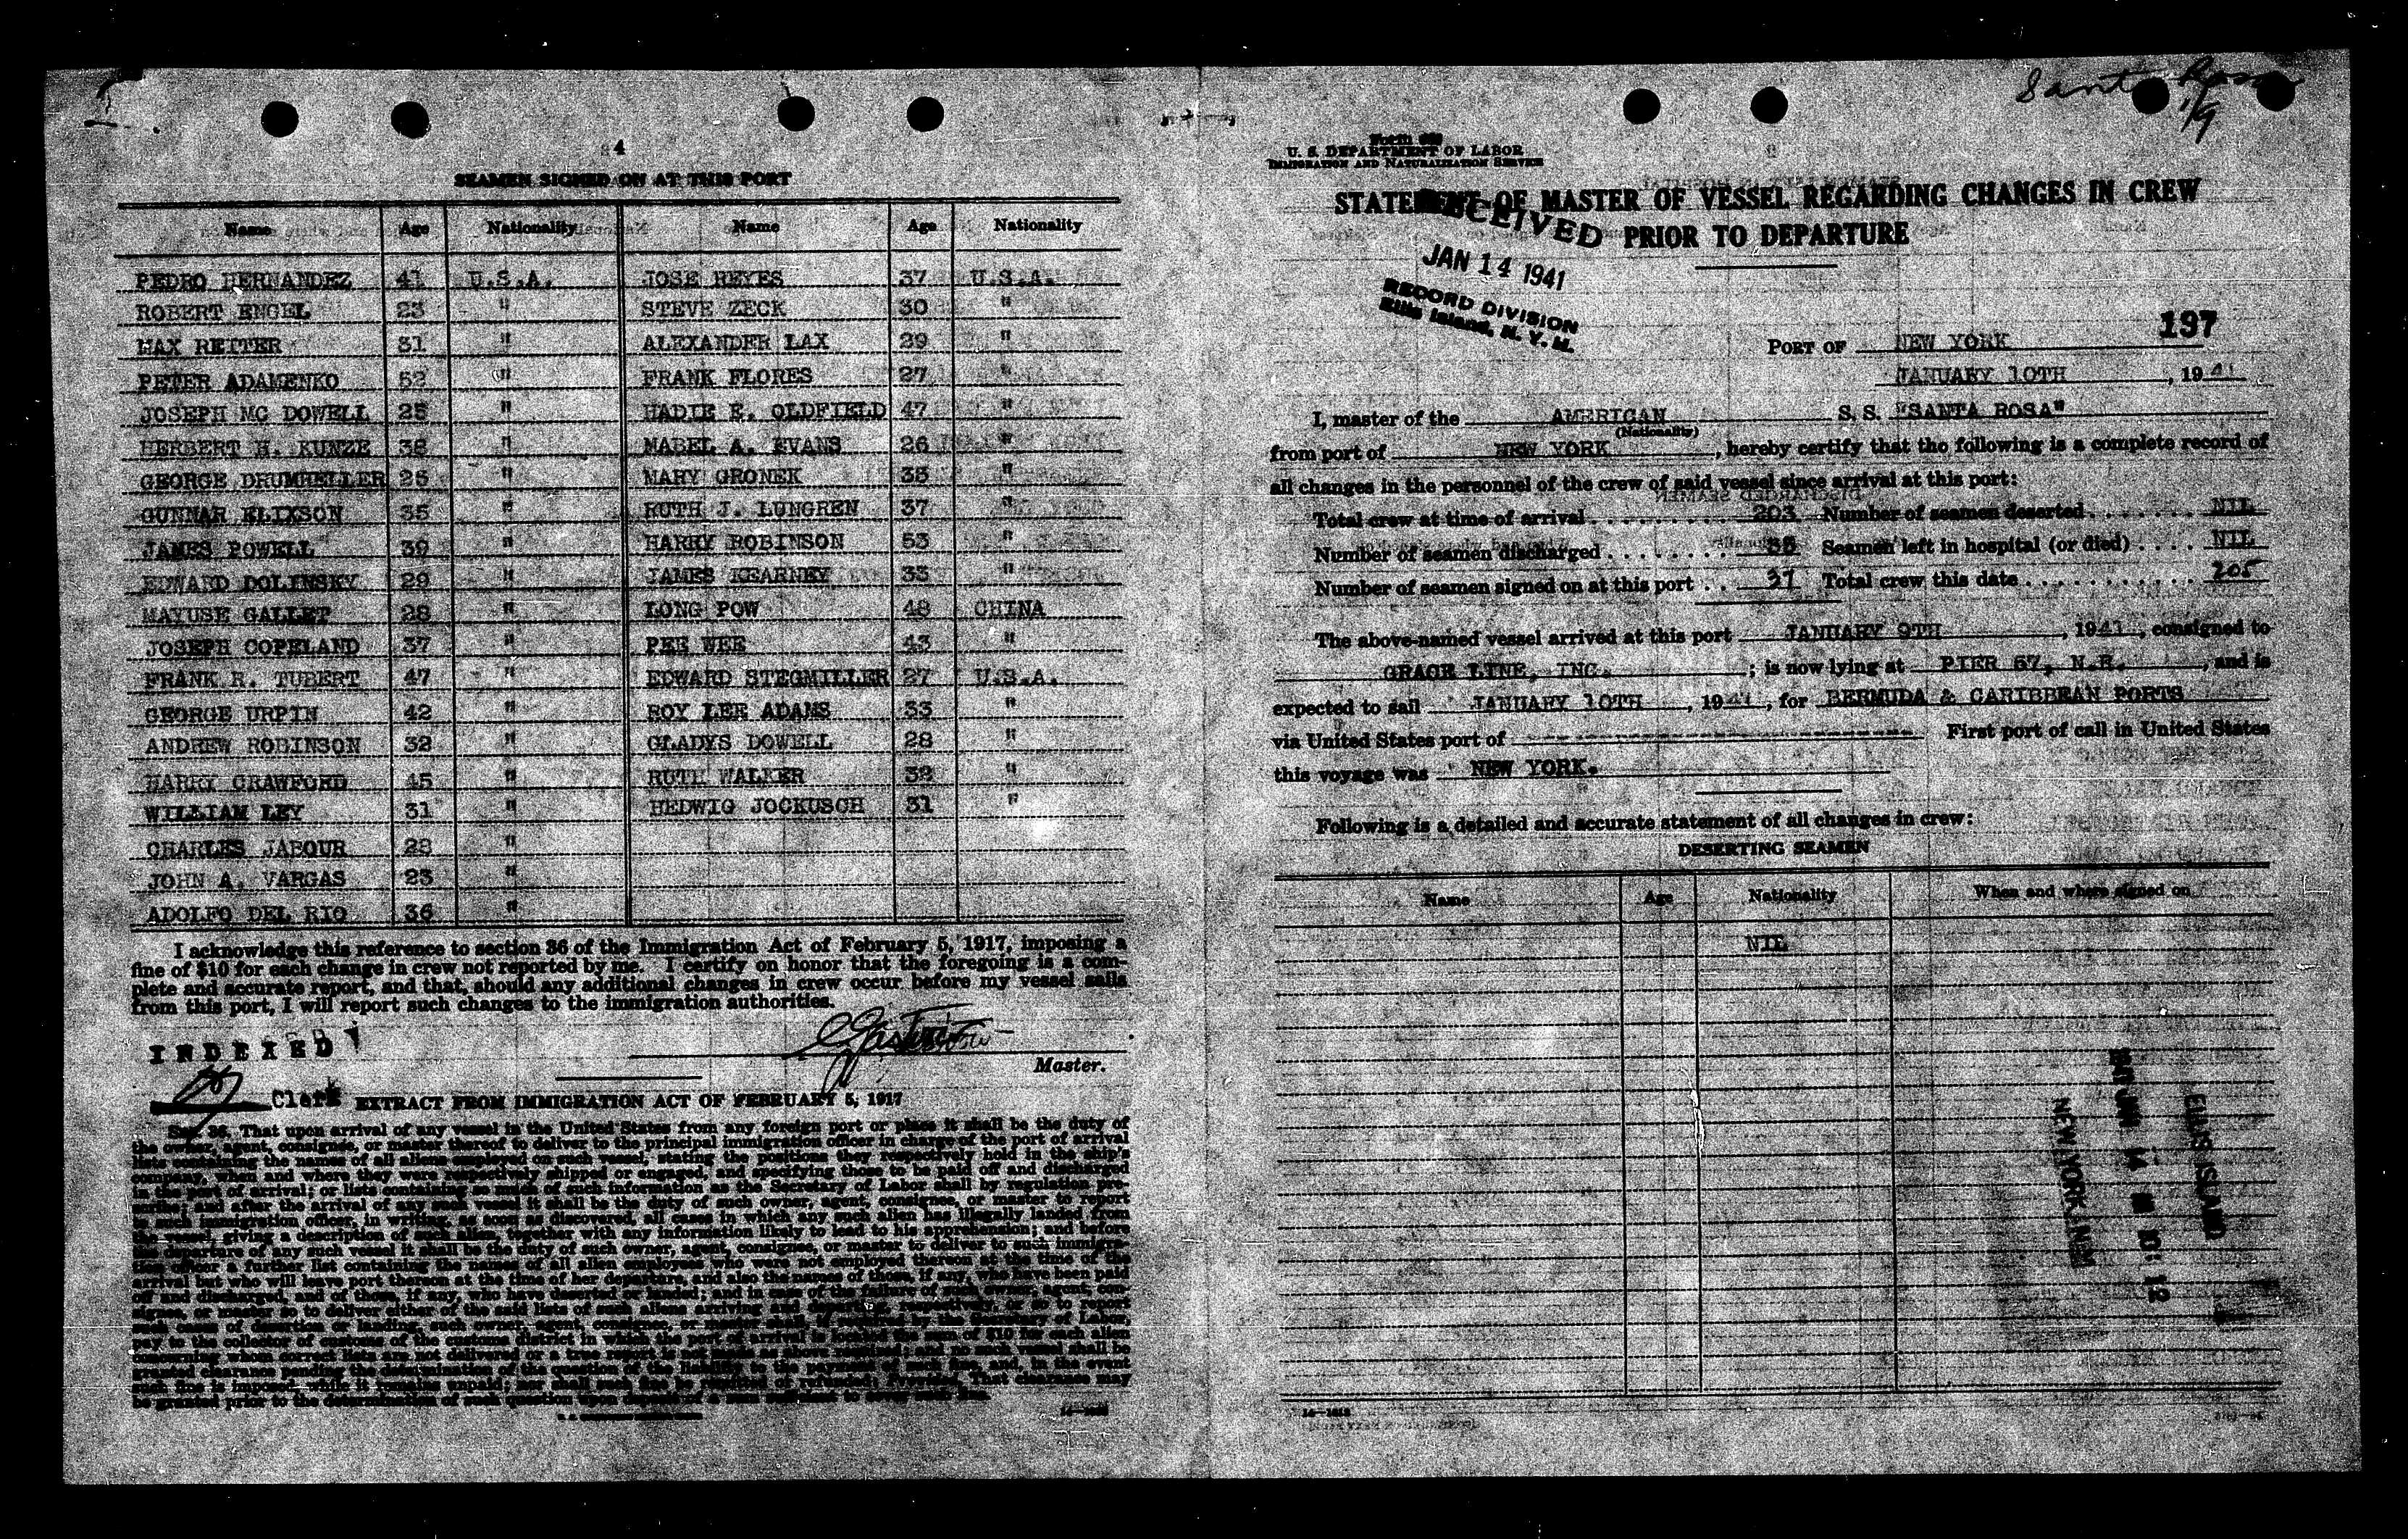 4
SEAMEN SIGNED ON AT THIS PORT
Name Age Nationality Name Age Nationality
PEDRO HERNANDEZ 41 U.S.A. JOSE REYES 37 U.S.A.
ROBERT ENGEL 23 " STEVE ZECK 30 "
MAX REITER 31 " ALEXANDER LAX 29 "
PETER ADAMENKO 52 " FRANK FLORES 27 "
JOSEPH MC DOWELL 25 " HADIE E. OLDFIELD 47 "
HERBERT H. KUNZE 38 " MABEL A. EVANS 26 "
GEORGE DRUMHELLER 25 " MARY GRONEK 35 "
GUNNAR ELIXSON 35 " RUTH J. LUNGREN 37 "
JAMES POWELL 39 " HARRY ROBINSON 53 "
EDWARD DOLINSKY 29 " JAMES KEARNEY 33 "
MAYUSE GALLET 28 " LONG POW 48 CHINA
JOSEPH COPELAND 37 " PEE WEE 43 "
FRANK R. TUBERT 47 " EDWARD STEGMILLER 27 U.S.A.
GEORGE URPIN 42 " ROY LEE ADAMS 33 "
ANDREW ROBINSON 32 " GLADYS DOWELL 28 "
HARRY CRAWFORD 45 " RUTH WALKER 32 "
WILLIAM LEY 31 " HEDWIG JOCKUSCH 31 "
CHARLES JABOUR 28 "
JOHN A. VARGAS 23 "
ADOLFO DEL RIO 36 "
I acknowledge this reference to section 36 of the Immigration Act of February 5, 1917, imposing a
fine of $10 for each change in crew not reported by me. I certify on honor that the foregoing is a com-
plete and accurate report, and that, should any additional changes in crew occur before my vessel sails
from this port, I will report such changes to the immigration authorities.
INDEXED
Master.
Clerk
EXTRACT FROM IMMIGRATION ACT OF FEBRUARY 5, 1917
Sec. 36. That upon arrival of any vessel in the United States from any foreign port or place it shall be the duty of
the owner, agent, consignee, or master thereof to deliver to the principal immigration officer in charge of the port of arrival
lists containing the names of all aliens employed on such vessel, stating the positions they respectively hold in the ship's
company, when and where they were respectively shipped or engaged, and specifying those to be paid off and discharged
in the port of arrival; or lists containing so much of such information as the Secretary of Labor shall by regulation pre-
scribe; and after the arrival of any such vessel it shall be the duty of such owner, agent, consignee, or master to report
to such immigration officer, in writing, as soon as discovered, all cases in which any such alien has illegally landed from
the vessel, giving a description of such alien, together with any information likely to lead to his apprehension; and before
the departure of any such vessel it shall be the duty of such owner, agent, consignee, or master to deliver to such immigra-
tion officer a further list containing the names of all alien employees who were not employed thereon at the time of the
arrival but who will leave port thereon at the time of her departure, and also the names of those, if any, who have been paid
off and discharged, and of those, if any, who have deserted or landed; and in case of the failure of such owner, agent, con-
signee, or master so to deliver either of the said lists of such aliens arriving and departing, respectively, or so to report
such cases of desertion or landing, such owner, agent, consignee, or master shall, if required by the Secretary of Labor,
pay to the collector of customs of the customs district in which the port of arrival is located the sum of $10 for each alien
concerning whom correct lists are not delivered or a true report is not made as above required; and no such vessel shall be
granted clearance pending the determination of the question of the liability to the payment of such fine, and, in the event
such fine is imposed, while it remains unpaid; nor shall such fine be remitted or refunded: Provided, That clearance may
be granted prior to the determination of such question upon deposit of a sum sufficient to cover such fine.
Santa Rosa
1/9
U. S. DEPARTMENT OF LABOR
IMMIGRATION AND NATURALIZATION SERVICE
STATEMENT OF MASTER OF VESSEL REGARDING CHANGES IN CREW
PRIOR TO DEPARTURE
RECEIVED
JAN 14 1941
RECORD DIVISION
Ellis Island, N. Y. H.
197
PORT OF NEW YORK
JANUARY 10TH, 1941
I, master of the AMERICAN S. S. "SANTA ROSA"
(Nationality)
from port of NEW YORK, hereby certify that the following is a complete record of
all changes in the personnel of the crew of said vessel since arrival at this port:
Total crew at time of arrival 203 Number of seamen deserted NIL
Number of seamen discharged 35 Seamen left in hospital (or died) NIL
Number of seamen signed on at this port 37 Total crew this date 205
The above-named vessel arrived at this port JANUARY 9TH, 1941, consigned to
GRACE LINE, INC.; is now lying at PIER 57, N.R., and is
expected to sail JANUARY 10TH, 1941, for BERMUDA & CARIBBEAN PORTS
via United States port of ---------------- First port of call in United States
this voyage was NEW YORK.
Following is a detailed and accurate statement of all changes in crew:
DESERTING SEAMEN
Name Age Nationality When and where signed on
NIL
ELLIS ISLAND
NEW YORK